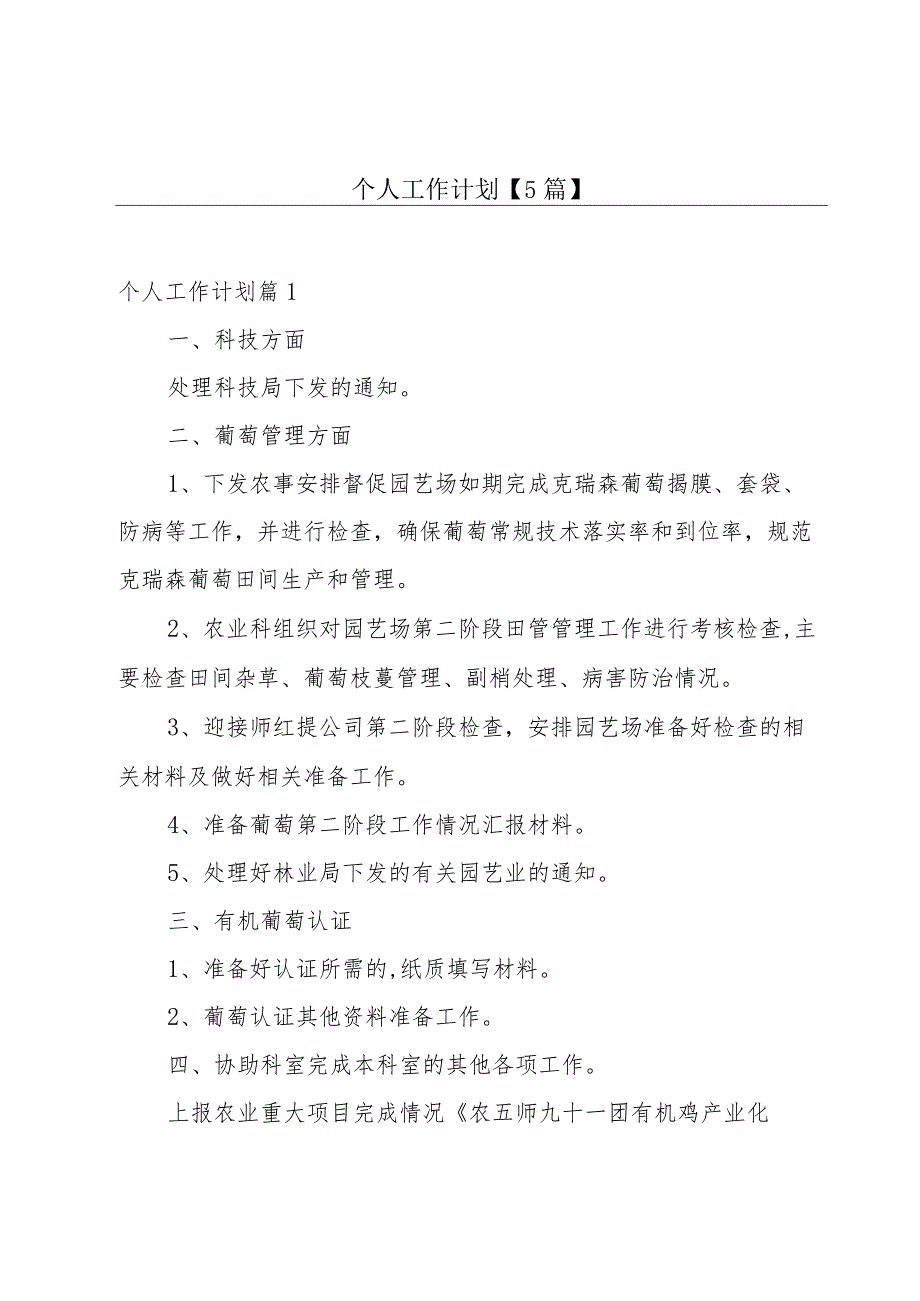 个人工作计划【5篇】
个人工作计划篇1
一、科技方面
处理科技局下发的通知。
二、葡萄管理方面
1、下发农事安排督促园艺场如期完成克瑞森葡萄揭膜、套袋、
防病等工作，并进行检查，确保葡萄常规技术落实率和到位率，规范
克瑞森葡萄田间生产和管理。
2、农业科组织对园艺场第二阶段田管管理工作进行考核检查,主
要检查田间杂草、葡萄枝蔓管理、副梢处理、病害防治情况。
3、迎接师红提公司第二阶段检查，安排园艺场准备好检查的相
关材料及做好相关准备工作。
4、准备葡萄第二阶段工作情况汇报材料。
5、处理好林业局下发的有关园艺业的通知。
三、有机葡萄认证
1、准备好认证所需的,纸质填写材料。
2、葡萄认证其他资料准备工作。
四、协助科室完成本科室的其他各项工作。
上报农业重大项目完成情况《农五师九十一团有机鸡产业化